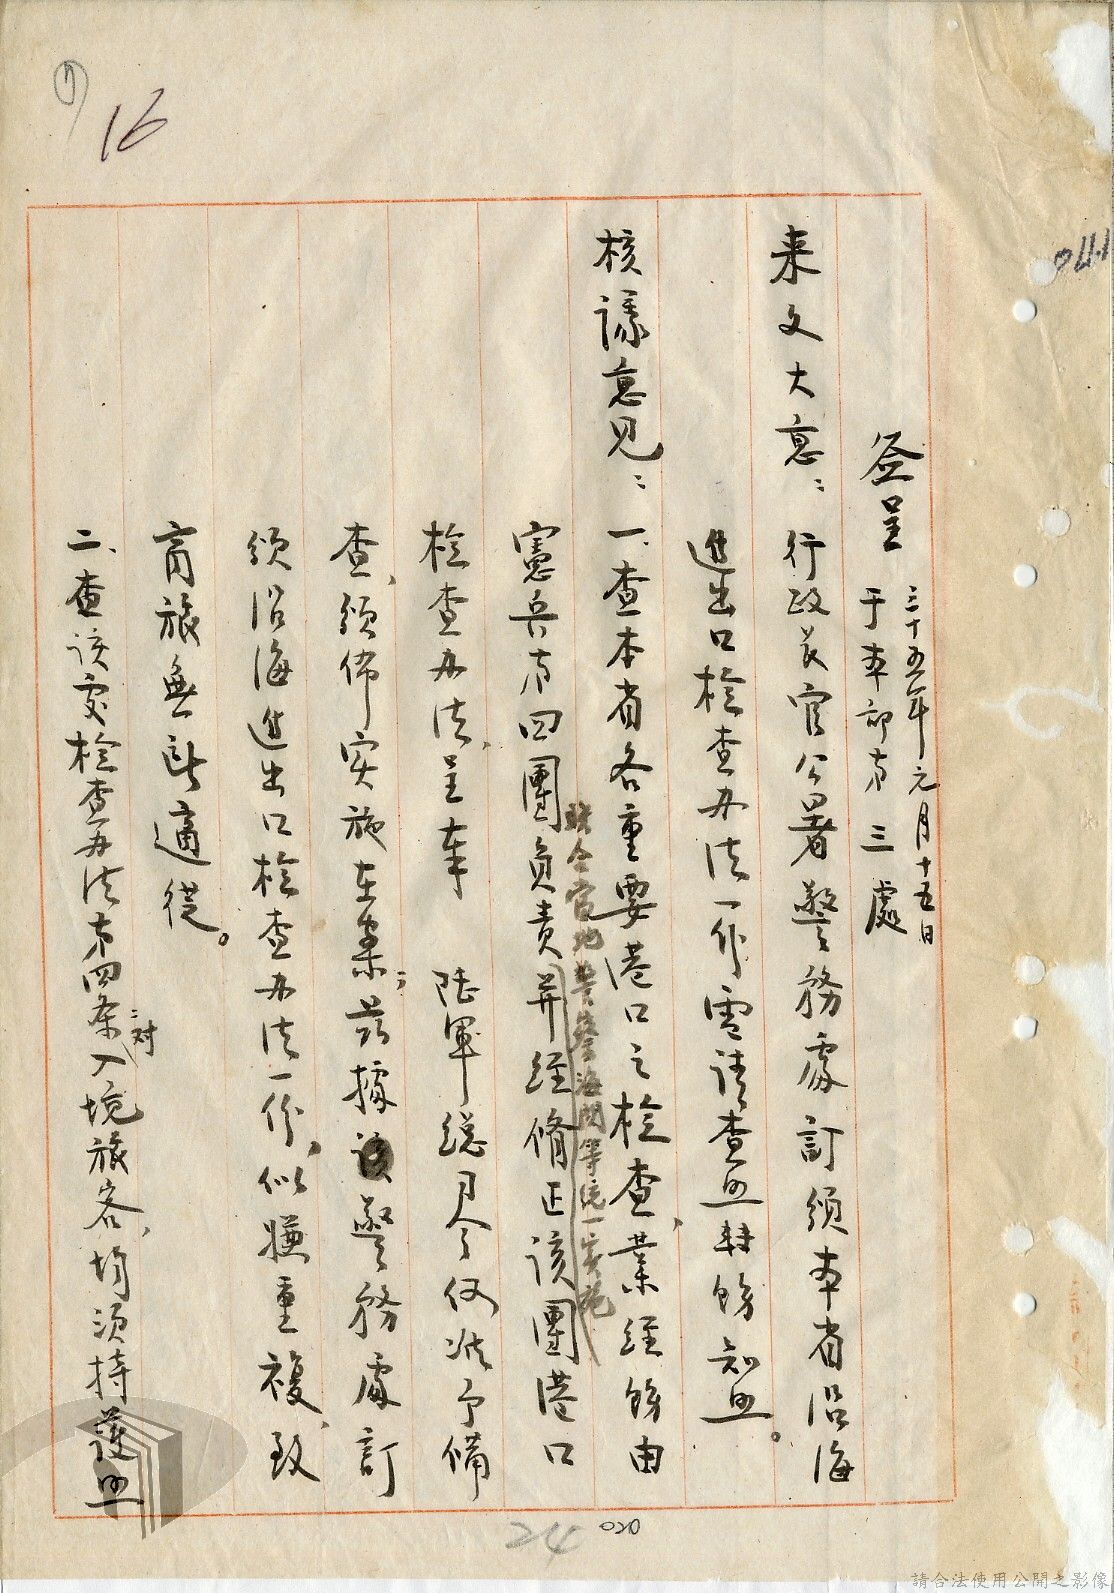 签呈 三十五年元月十五日
于本部第三處
来文大意：行政長官公署警務處訂頒本省沿海
進出口檢查办法一份電請查照转飭知照。
核議意見：一、查本省各重要港口之檢查，業經飭由
憲兵第四團負責并經修正該團港口
联合當地警察海関等統一实施
檢查办法，呈奉 陆軍總司令 准予備
查，頒佈实施在案；茲據該警務處訂
頒沿海進出口檢查办法一份，似嫌重複，致
商旅無所適從。
二、查該處檢查办法第四条：对入境旅客，均須持護照
16
24
020
請合法使用公開之影像